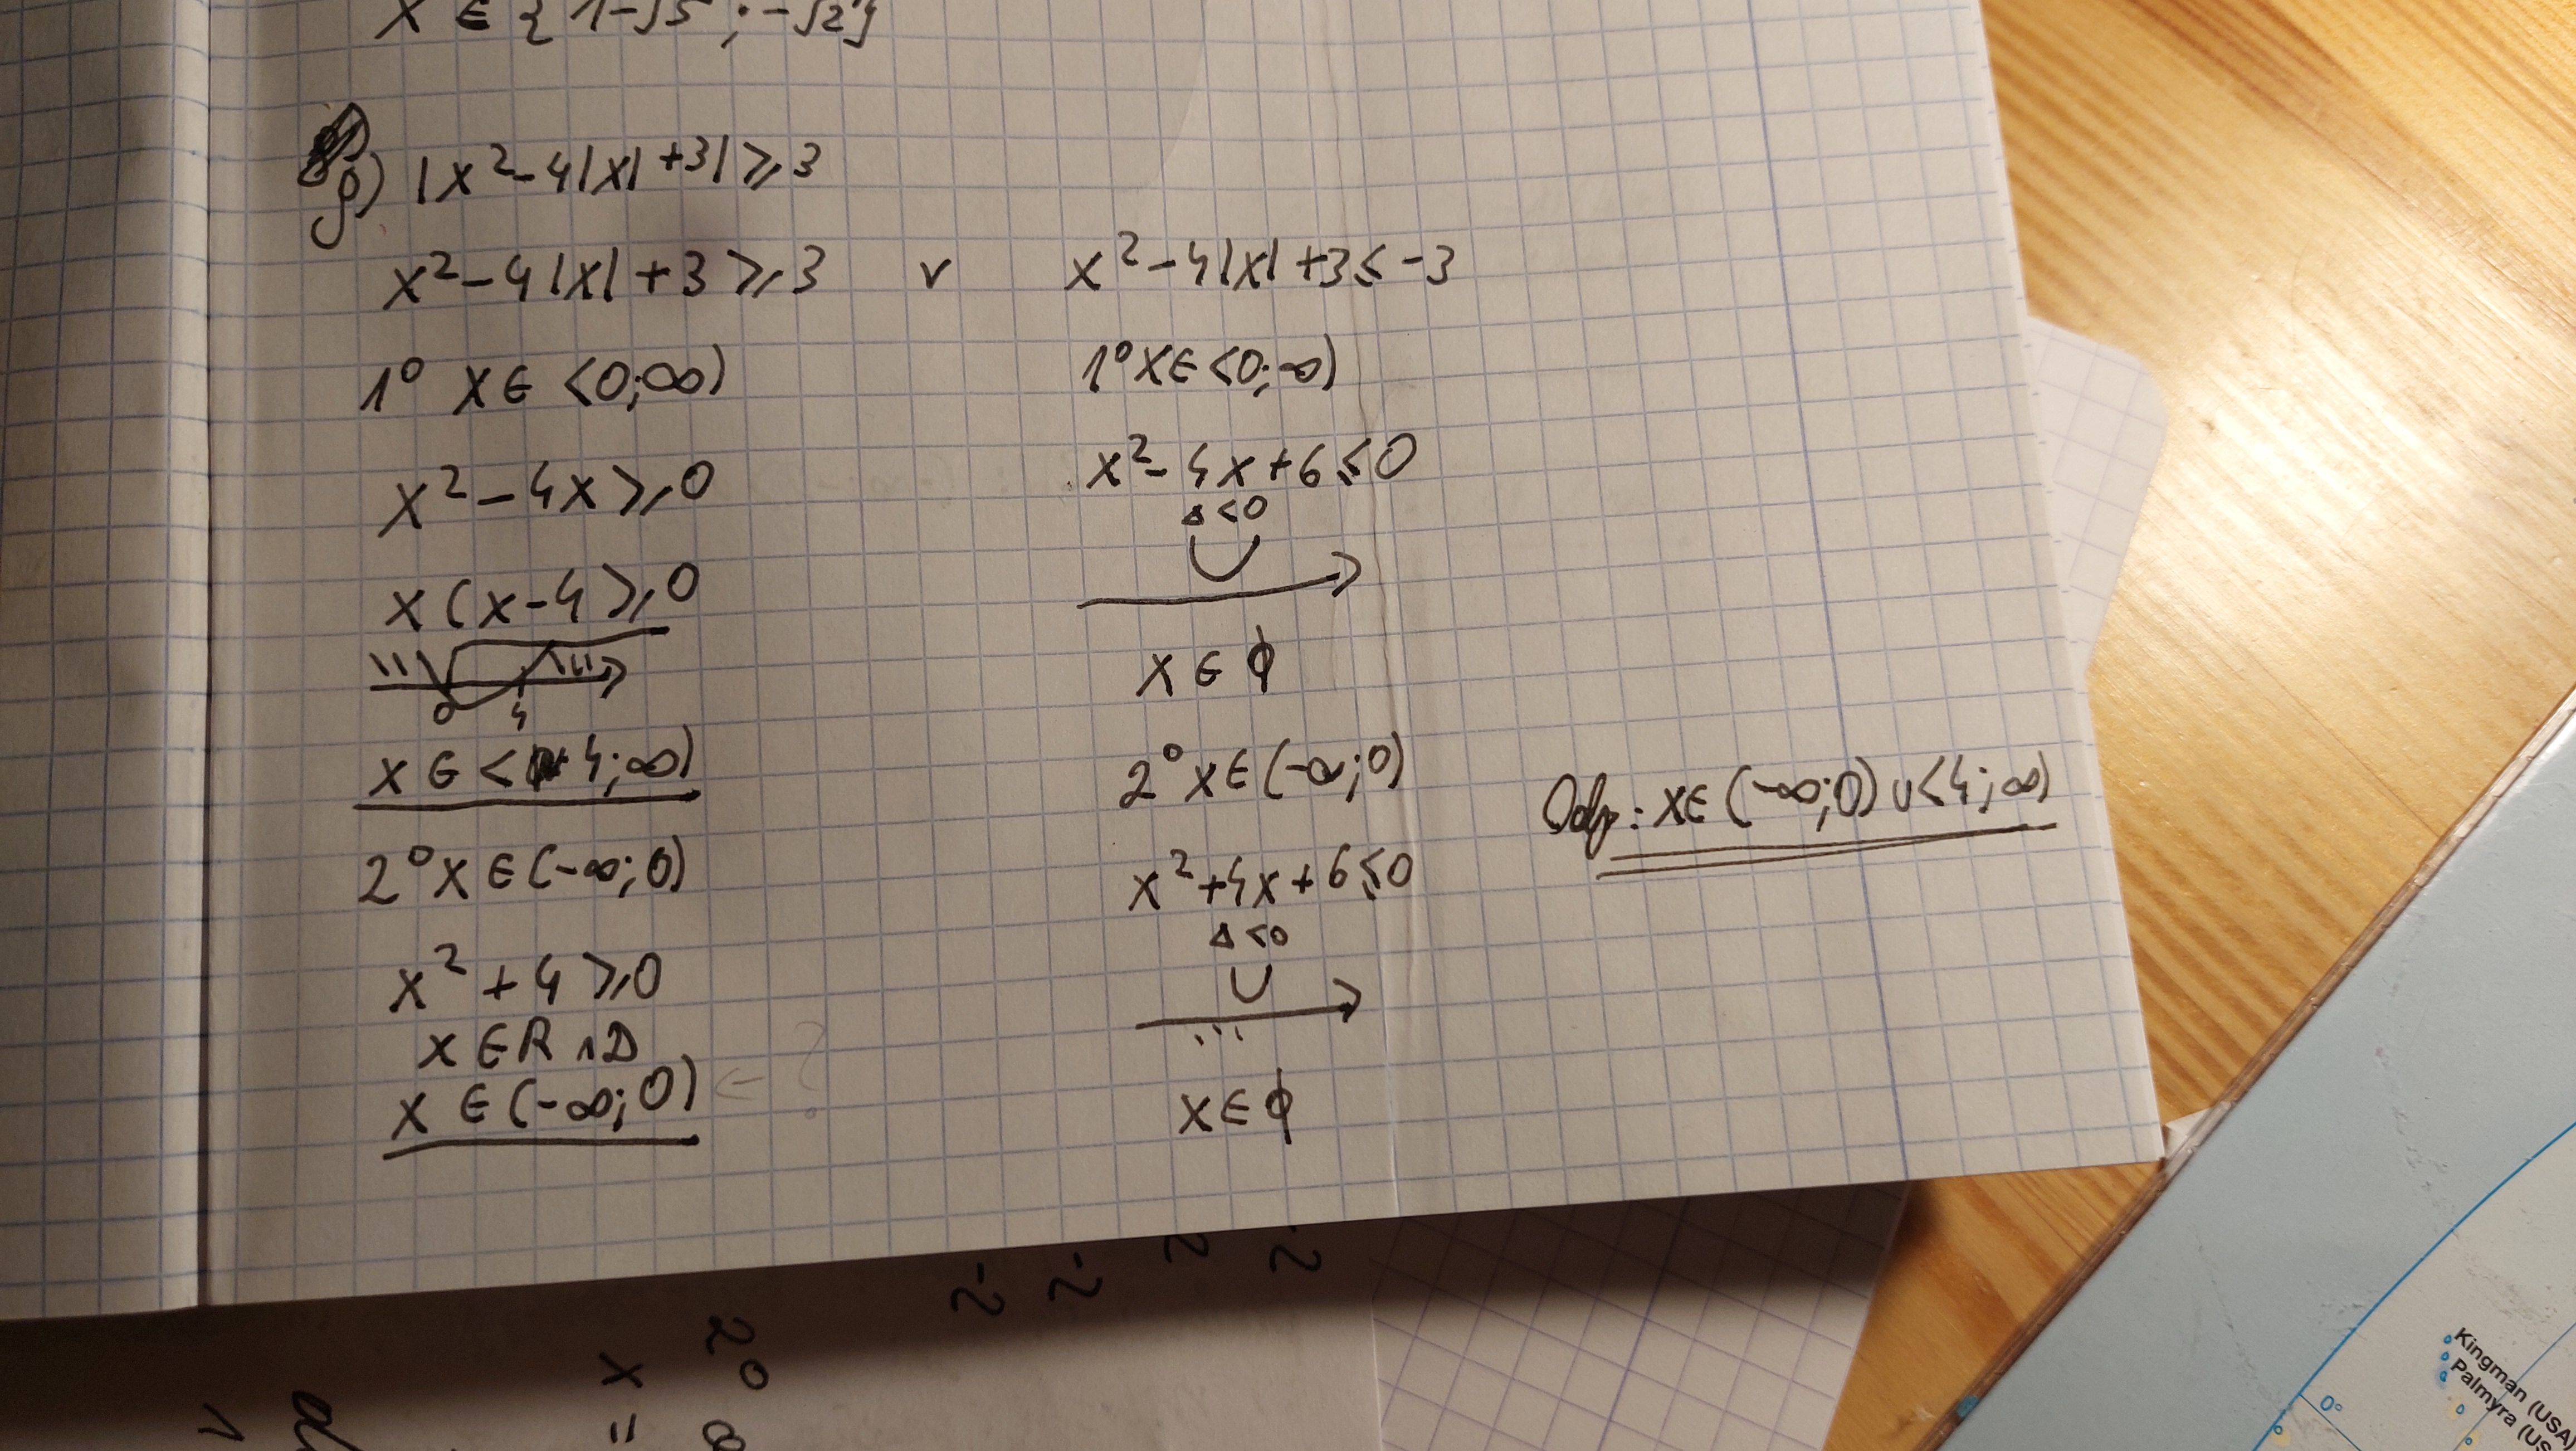 x ∈ {1-√5 ; -√2}
g) |x²-4|x|+3|⩾3
x²-4|x|+3⩾3 v x²-4|x|+3⩽-3
1° x∈<0;∞)
x²-4x⩾0
x(x-4⩾0
0 4
x∈<4;∞)
2° x∈(-∞;0)
x²+4⩾0
x∈R ∩D
x∈(-∞;0) ← ?
1° x∈<0;∞)
x²-4x+6⩽0
Δ<0
x∈ϕ
2° x∈(-∞;0)
x²+4x+6⩽0
Δ<0
x∈ϕ
Odp: x∈(-∞;0)∪<4;∞)
-2 -2 2 -2
2°
x
=
Kingman (USA
Palmyra (US
0°